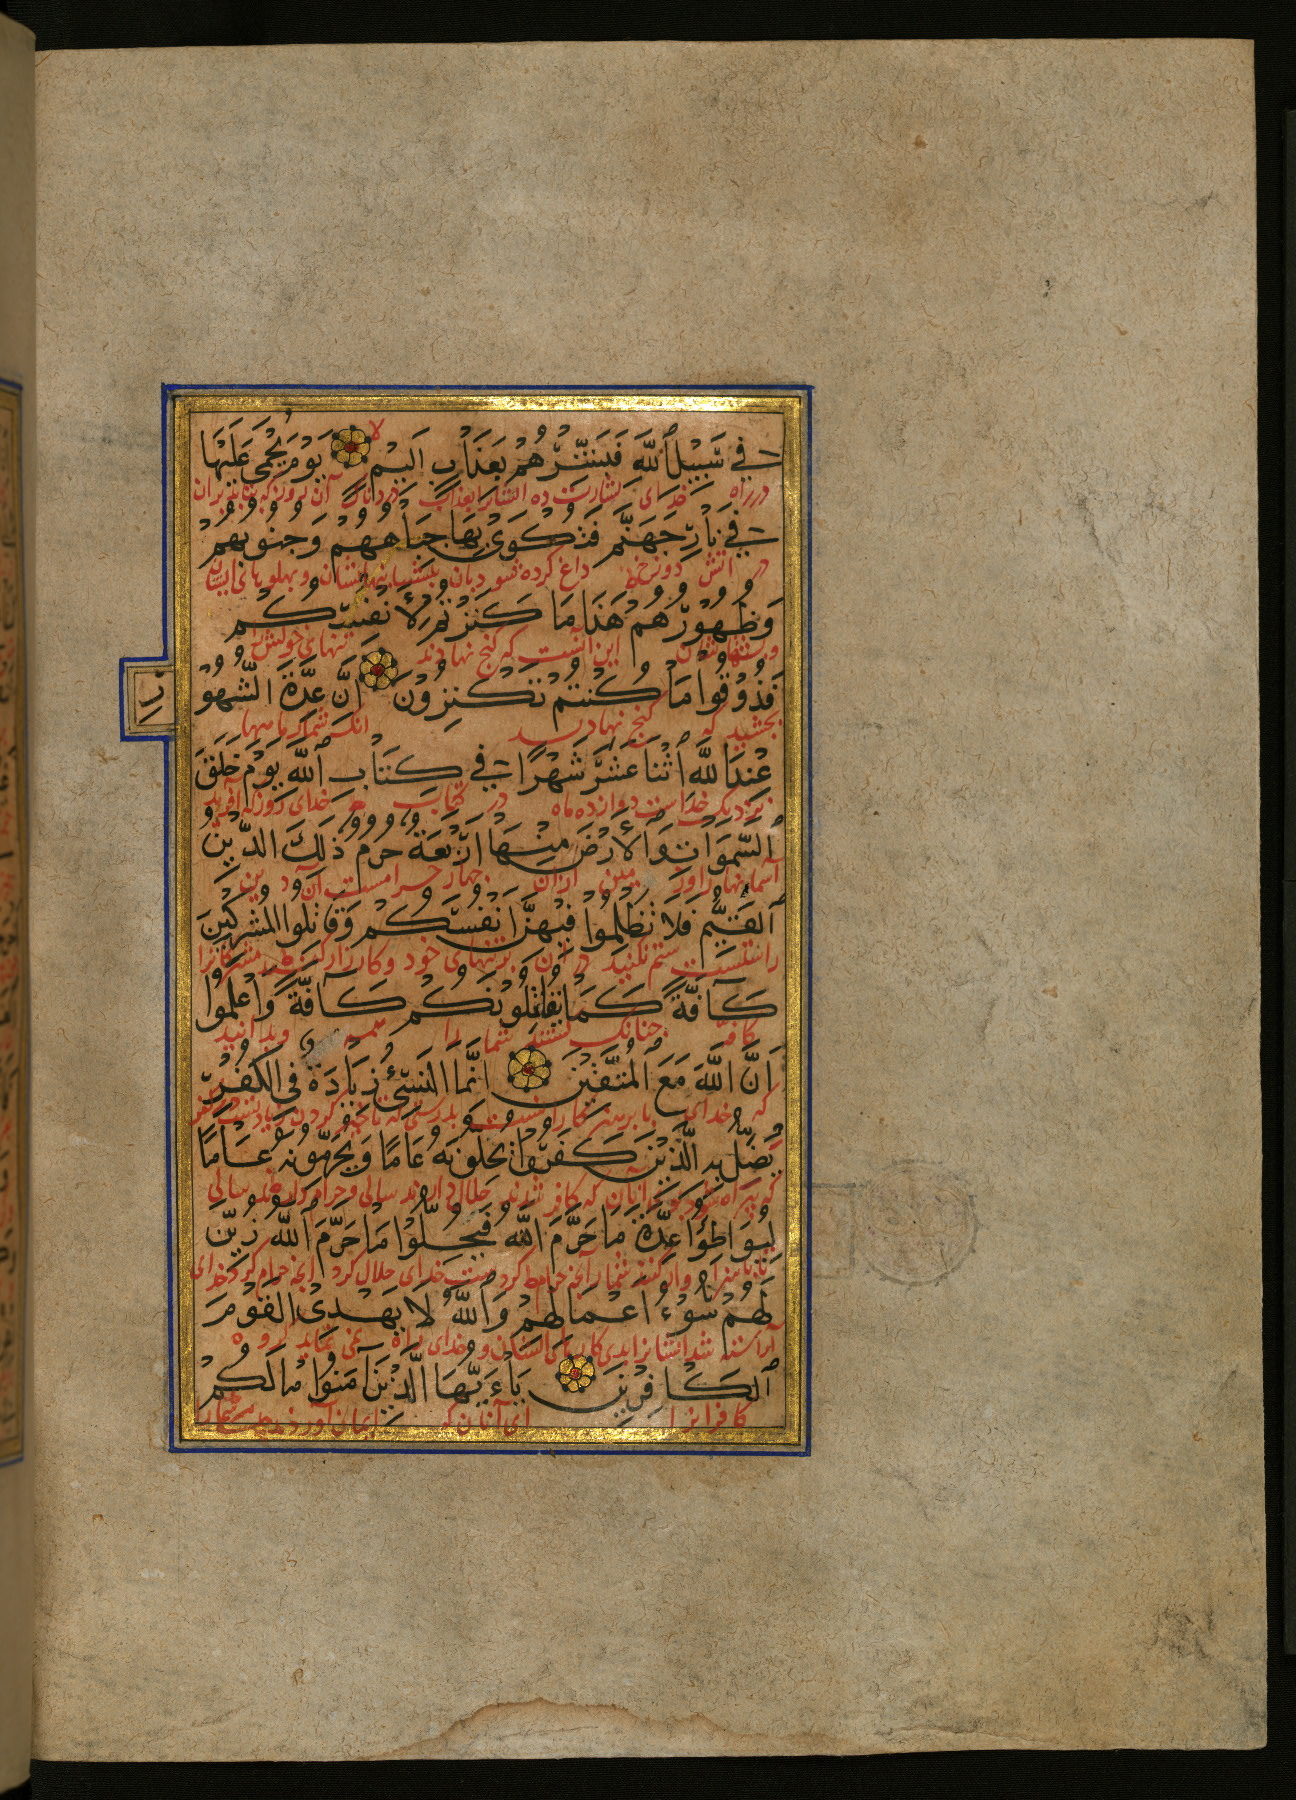 في سَبِيلِ اللَّهِ فَبَشِّرْهُمْ بِعَذَابٍ اَلِيمٍ لا يَوْمَ يُحْمَى عَلَيْهَا
در راه خدای بشارت ده ایشانرا بعذاب دردناک آن روز که بتابند بران
في نَارِ جَهَنَّمَ فَتُكْوَى بِهَا جِبَاهُهُمْ وَجُنُوبُهُمْ
در آتش دوزخ داغ کرده شود بان پیشانیهاایشان وپهلوهای ایشان
وَظُهُورُهُمْ هَذَا مَا كَنَزْتُمْ لِأَنْفُسِكُمْ
این آنست که گنج نهادند تنهای خویش را
فَذُوقُوا مَا كُنْتُمْ تَكْنِزُونَ اِنَّ عِدَّةَ الشُّهُوْ
بچشید که گنج نهادید
رِ
عِنْدَ اللَّهِ اثْنَا عَشَرَ شَهْرًا في كِتَابِ اللَّهِ يَوْمَ خَلَقَ
نزدیک خداست دوازده ماه در کتاب خدای روزکه آفرید
السَّمَوَاتِ وَالْأَرْضَ مِنْهَا اَرْبَعَةٌ حُرُمٌ ذَلِكَ الدِّينُ
آسمانها را وز مین ازان چهار حرامست آن دین
الْقَيِّمُ فَلَا تَظْلِمُوا فِيهِنَّ اَنْفُسَكُمْ وَقَاتِلُوا الْمُشْرِكِينَ
راستست ستم نکنید در ان برتنهای خود وکارزار کنید مشرکانرا
كَآفَّةً كَمَا يُقَاتِلُونَكُمْ كَآفَّةً وَاعْلَمُوا
کافه چنانک کشتند شما را همه وبدانید
اَنَّ اللَّهَ مَعَ الْمُتَّقِينَ اِنَّمَا النَّسِيءُ زِيَادَةٌ فِي الْكُفْرِ
که خدای با پرهیزکارانست
يُضَلُّ بِهِ الَّذِينَ كَفَرُوا يُحِلُّونَهُ عَامًا وَيُحَرِّمُونَهُ عَامًا
آنان که کافر شدند حلال دارند سالی وحرام دارند سالی
لِيُوَاطِئُوا عِدَّةَ مَا حَرَّمَ اللَّهُ فَيُحِلُّوا مَا حَرَّمَ اللَّهُ زُيِّنَ
خدای حلال کرد آنچه حرام کرد خدای
لَهُمْ سُوْءُ اَعْمَالِهِمْ وَاللَّهُ لَا يَهْدِي الْقَوْمَ
آراسته شد ایشانرا بدی کارهای ایشان وخدای راه نمی نماید گروه
الْكَافِرِينَ يَاءَيُّهَا الَّذِينَ آمَنُوا مَا لَكُمْ
کافرانرا ای آنان که ایمان آوردند